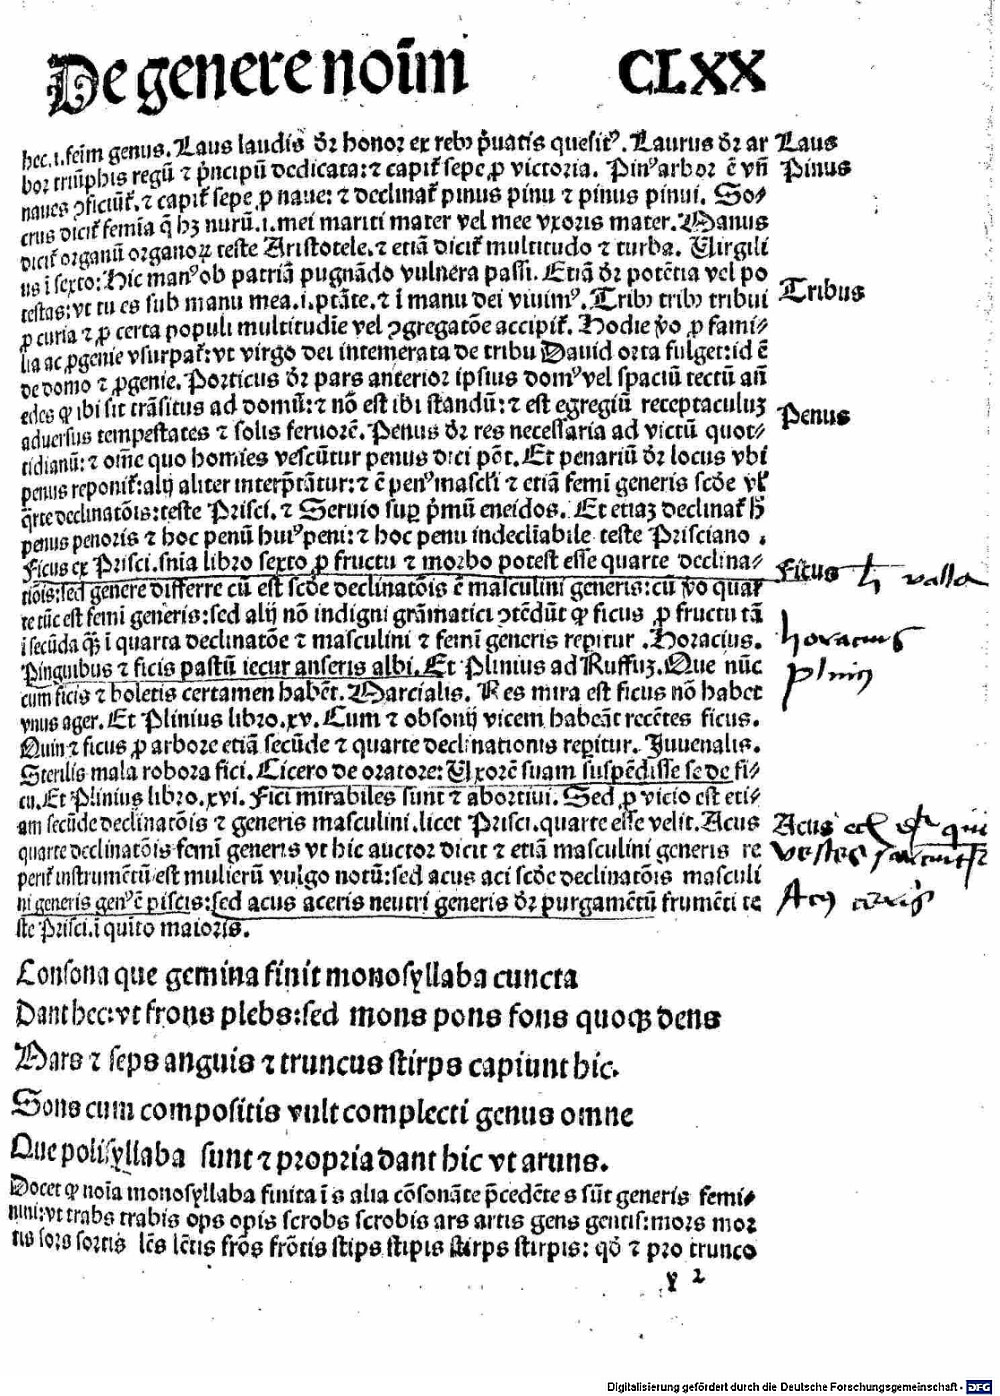 De genere noīm CLXX
hec.i.feīm genus. Laus laudis dr̄ honor ex rebꝫ p̄uatis quesitꝰ. Laurus dr̄ ar Laus
bor triūphis regū ⁊ p̄ncipū dedicata: ⁊ capit̄ sepe ꝓ victoria. Pinꝰ arbor ē vn̄ Pinus
naues ꝯficiūt̄. ⁊ capit̄ sepe ꝓ naue: ⁊ declinat̄ pinus pinu ⁊ pinus pinui. So⸗
crus dicit̄ femīa q̄ hꝫ nurū .i. mei mariti mater vel mee vxoris mater. Manus
dicit̄ organū organoꝝ teste Aristotele. ⁊ etiā dicit̄ multitudo ⁊ turba. Virgili
us ī sexto: Hic manꝰ ob patriā pugnādo vulnera passi. Etiā dr̄ potētia vel po
testas: vt tu es sub manu mea .i. ptāte. ⁊ ī manu dei viuimꝰ. Tribꝰ tribꝰ tribui Tribus
ꝓ curia ⁊ ꝓ certa populi multitudīe vel ꝯgregatōe accipit̄. Hodie v̄o ꝓ fami⸗
lia ac ꝓgenie vsurpat̄: vt virgo dei intemerata de tribu Dauid orta fulget: id ē
de domo ⁊ ꝓgenie. Porticus dr̄ pars anterior ipsius domꝰ vel spaciū tectū an̄
edes ꝙ ibi sit trāsitus ad domū: ⁊ nō est ibi standū: ⁊ est egregiū receptaculuꝫ
aduersus tempestates ⁊ solis feruorē. Penus dr̄ res necessaria ad victū quot⸗ Penus
tidianū: ⁊ om̄e quo homīes vescūtur penus dici pōt. Et penariū dr̄ locus vbi
penus reponit̄: alij aliter interp̄tātur: ⁊ ē penꝰ mascl̄i ⁊ etiā femī generis scd̄e vl̄
q̄rte declinatōis: teste Prisci. ⁊ Seruio sup̄ p̄mū eneidos. Et etiaꝫ declinat̄ h̄
penus penoris ⁊ hoc penū huiꝰ peni: ⁊ hoc penu indeclīabile teste Prisciano.
Ficus ex Prisci. sn̄ia libro sexto ꝓ fructu ⁊ morbo potest esse quarte declina⸗ Ficus vallа
tiōis: sed genere differre cū est scd̄e declinatōis ē masculini generis: cū v̄o quar
te tūc est femī generis: sed alij nō indigni grāmatici ꝯtēdūt ꝙ ficus ꝓ fructu tā
ī secūda qꝫ ī quarta declinatōe ⁊ masculini ⁊ femī generis repitur. Horacius. horacius
Pinguibus ⁊ ficis pastū iecur anseris albi. Et Plinius ad Ruffuꝫ. Que nūc plinij
cum ficis ⁊ boletis certamen habēt. Marcialis. Res mira est ficus nō habet
vnus ager. Et Plinius libro .xv. Cum ⁊ obsonij vicem habeāt recētes ficus.
Quin ⁊ ficus ꝓ arbore etiā secūde ⁊ quarte declinationis repitur. Juuenalis.
Sterilis mala robora fici. Cicero de oratore: Uxorē suam suspēdisse se de fi⸗
cu. Et Plinius libro .xvi. Fici mirabiles sunt ⁊ abortiui. Sed ꝓ vicio est eti⸗
am secūde declinatōis ⁊ generis masculini. licet Prisci. quarte esse velit. Acus Acus qui
quarte declinatōis femī generis vt hic auctor dicit ⁊ etiā masculini generis re vestes
perit̄ instrumētū est mulierū vulgo notū: sed acus aci scd̄e declinatōis masculi
ni generis genꝰ ē piscis: sed acus aceris neutri generis dr̄ purgamētū frumēti te
ste Prisci. ī quīto maioris.
Consona que gemina finit monosyllaba cuncta
Dant hec: vt frons plebs: sed mons pons fons quoqꝫ dens
Mars ⁊ seps anguis ⁊ truncus stirps capiunt hic.
Sons cum compositis vult complecti genus omne
Que polisyllaba sunt ⁊ propria dant hic vt aruns.
Docet ꝙ noīa monosyllaba finita ī s alia cōsonāte p̄cedēte s sūt generis femi⸗
nini: vt trabs trabis ops opis scrobs scrobis ars artis gens gentis: mors mor
tis sors sortis lēs lētis frōs frōtis stips stipis stirps stirpis: qd̄ ⁊ pro trunco
y 2
Digitalisierung gefördert durch die Deutsche Forschungsgemeinschaft - DFG